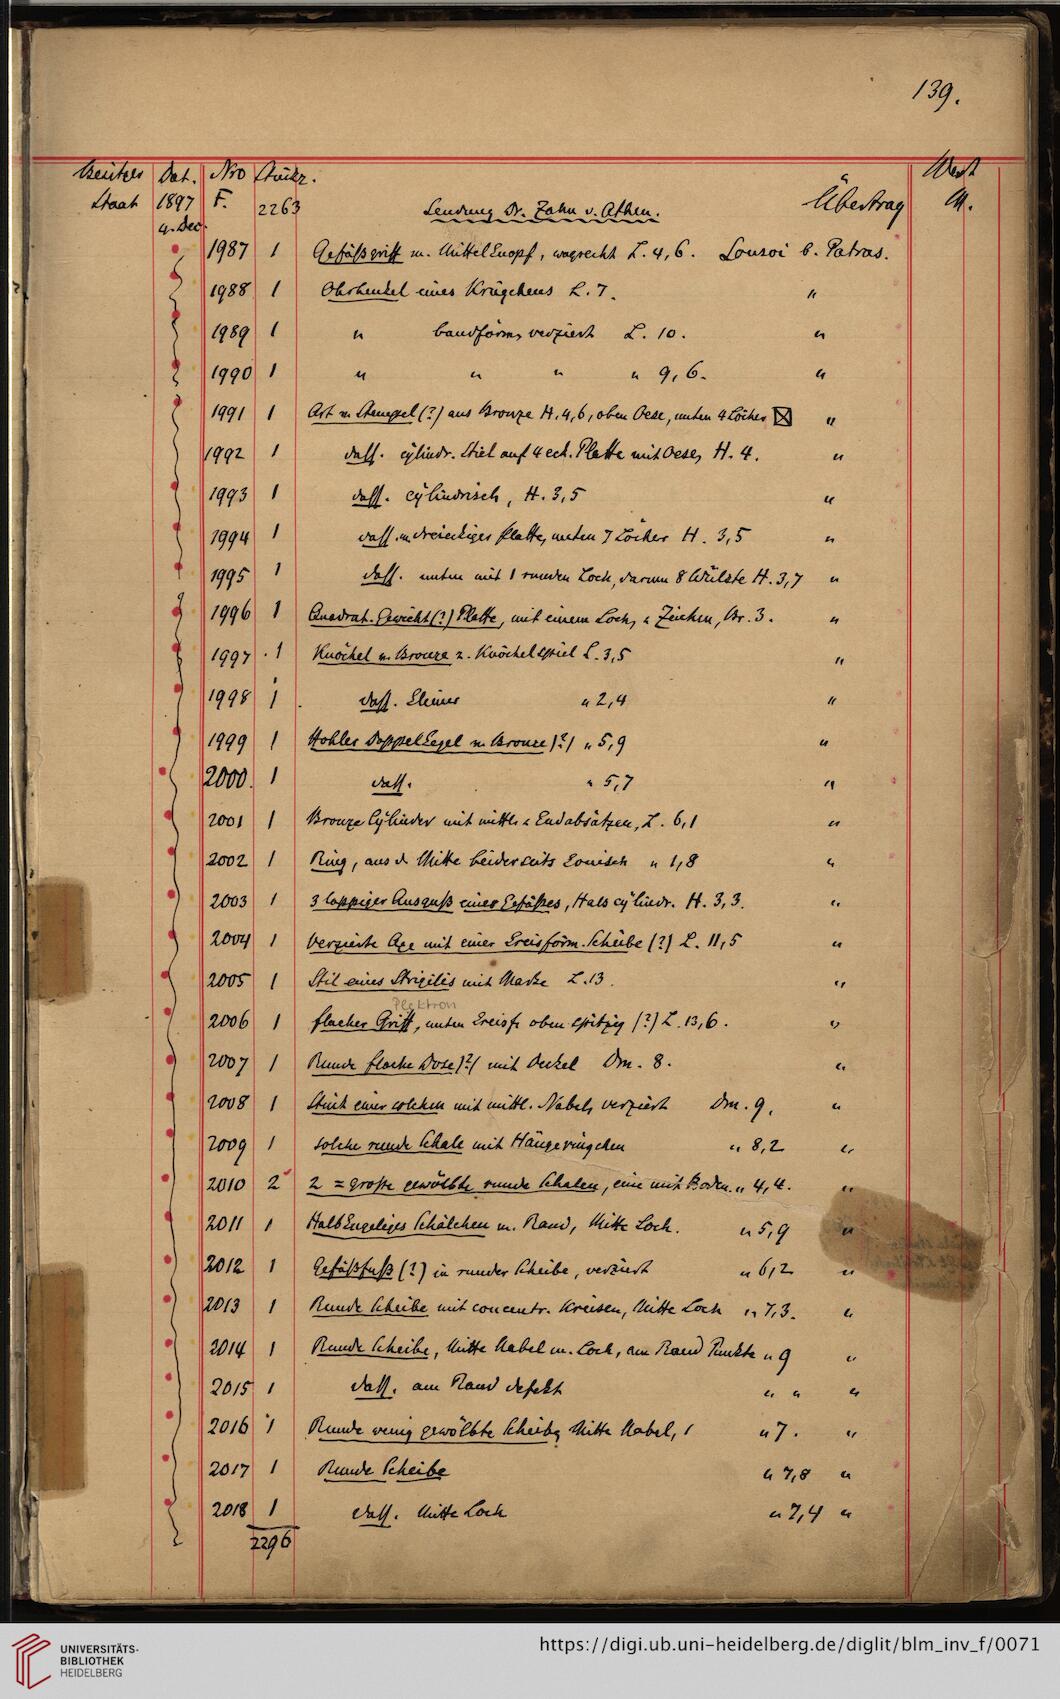 139.
Besitzer Dat. Nro Stückz. Wert
Staat 1897 F. 2263 Sendung Dr. Zahn v. Athen. Übertrag M.
4. Dec.
1987 1 Gefäßgriff m. Mittelknopf, wagrecht L. 4,6. Lousoi b. Patras.
1988 1 Ohrhenkel eines Krügchens L. 7. "
1989 1 " bandförm, verziert L. 10. "
1990 1 " " " " 9,6. "
1991 1 Art v. Stempel (?) aus Bronze H. 4,6, oben Oese, unten 4 Löcher "
1992 1 dass. cylindr. Stiel auf 4 eck. Platte mit Oese, H. 4. "
1993 1 dass. cylindrisch, H. 3,5 "
1994 1 dass. m. dreieckiger Platte, unten 7 Löcher H. 3,5 "
1995 1 dass. unten mit 1 runden Loch, darum 8 Wülste H. 3,7 "
1996 1 Quadrat. Gewicht (?) Platte, mit einem Loch, u Zeichen, Br. 3. "
1997 1 Knöchel v. Bronze z. Knöchelspiel L. 3,5 "
1998 1 dass. kleiner " 2,4 "
1999 1 Hohler Doppelkegel v. Bronze (?) " 5,9 "
2000. 1 dass. " 5,7 "
2001 1 Bronze Cylinder mit mittl. u Endabsätzen, L. 6,1 "
2002 1 Ring, aus d. Mitte beiderseits konisch " 1,8 "
2003 1 3 lappiger Ausguß eines Gefäßes, Hals cylindr. H. 3,3. "
2004 1 Verzierte Axe mit einer kreisförm. Scheibe (?) L. 11,5 "
2005 1 Stil eines Strigilis mit Marke L. 13. "
Plektron
2006 1 flacher Griff, unten kreisf. oben spitzig (?) L. 13,6. "
2007 1 Runde flache Dose (?) mit Deckel Dm. 8. "
2008 1 Stück einer solchen mit mittl. Nabel, verziert Dm. 9. "
2009 1 solche runde Schale mit Hängeringchen " 8,2 "
2010 2 2 = große gewölbte runde Schalen, eine mit Boden. " 4,4. "
2011 1 Halbkugeliges Schälchen m. Rand, Mitte Loch. " 5,9 "
2012 1 Gefäßfuß (?) in runder Scheibe, verziert " 6,2 "
2013 1 Runde Scheibe mit concentr. Kreisen, Mitte Loch " 7,3. "
2014 1 Runde Scheibe, Mitte Nabel m. Loch, am Rand Punkte " 9 "
2015 1 dass. am Rand defekt " " "
2016 1 Runde wenig gewölbte Scheibe, Mitte Nabel, " 7. "
2017 1 Runde Scheibe " 7,8 "
2018 1 dass. Mitte Loch " 7,4 "
2296
UNIVERSITÄTS-
BIBLIOTHEK
HEIDELBERG
https://digi.ub.uni-heidelberg.de/diglit/blm_inv_f/0071